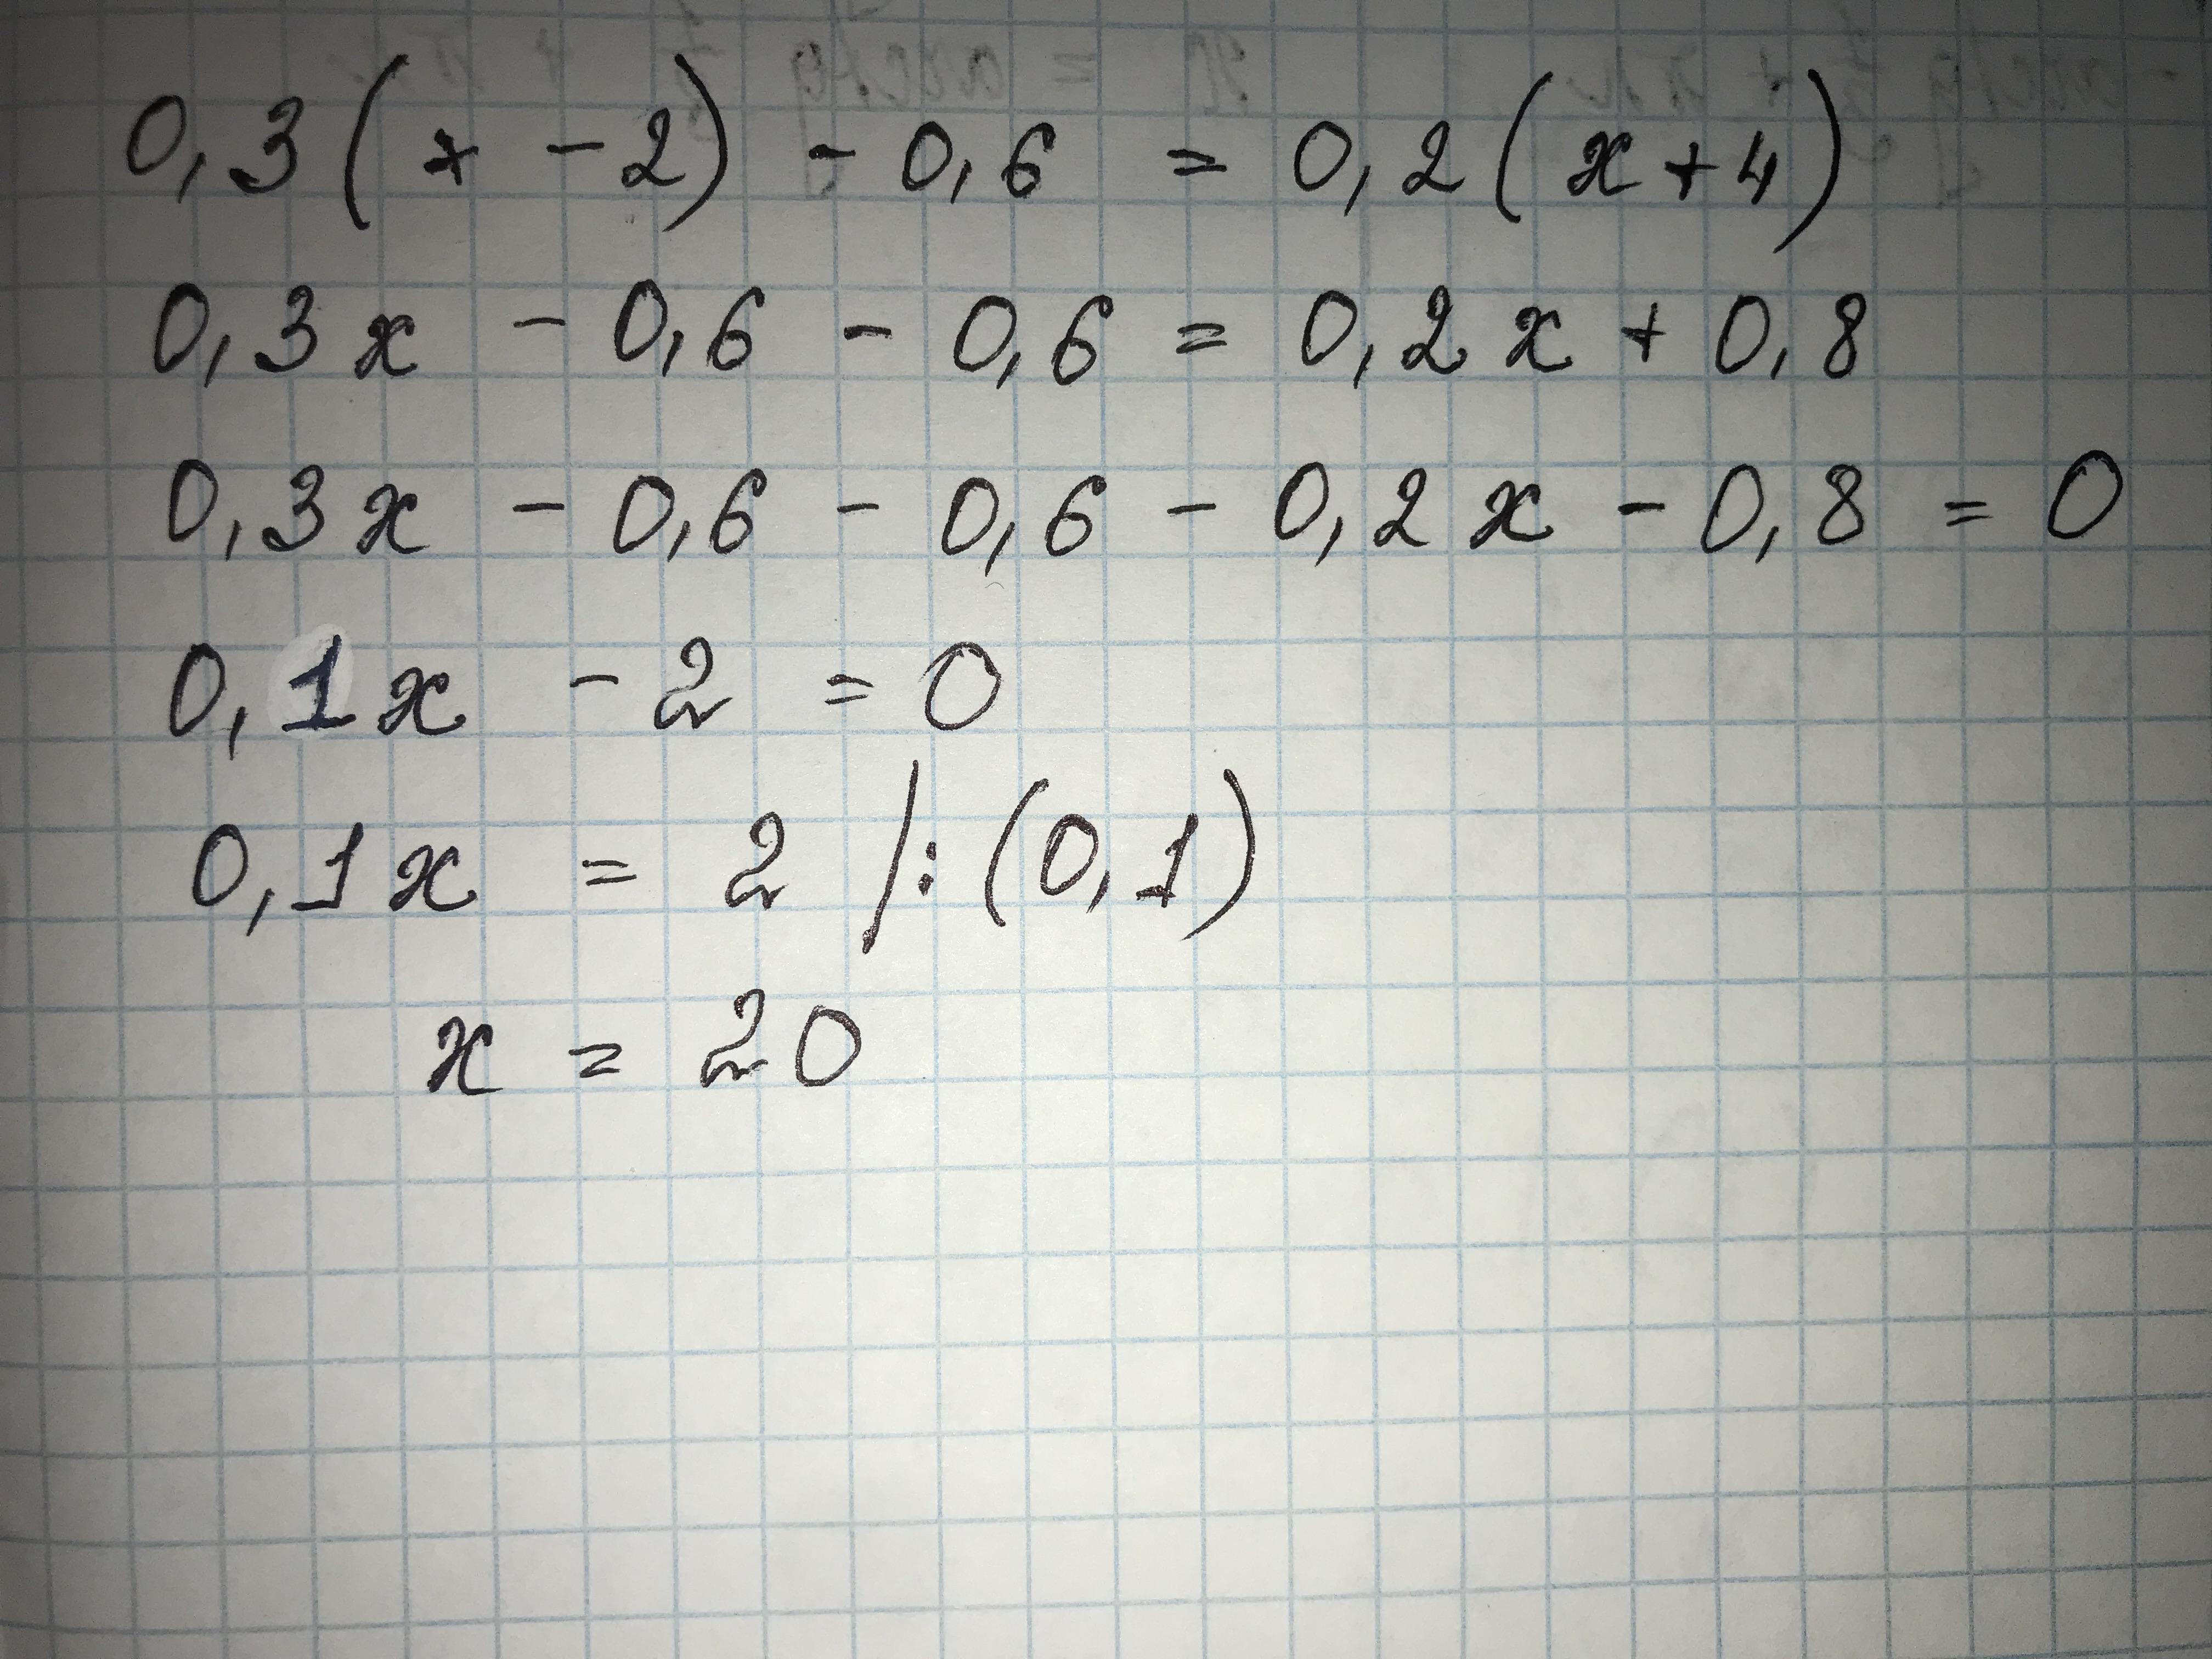 0,3(x - 2) - 0,6 = 0,2(x + 4)
0,3x - 0,6 - 0,6 = 0,2x + 0,8
0,3x - 0,6 - 0,6 - 0,2x - 0,8 = 0
0,1x - 2 = 0
0,1x = 2 |:(0,1)
x = 20